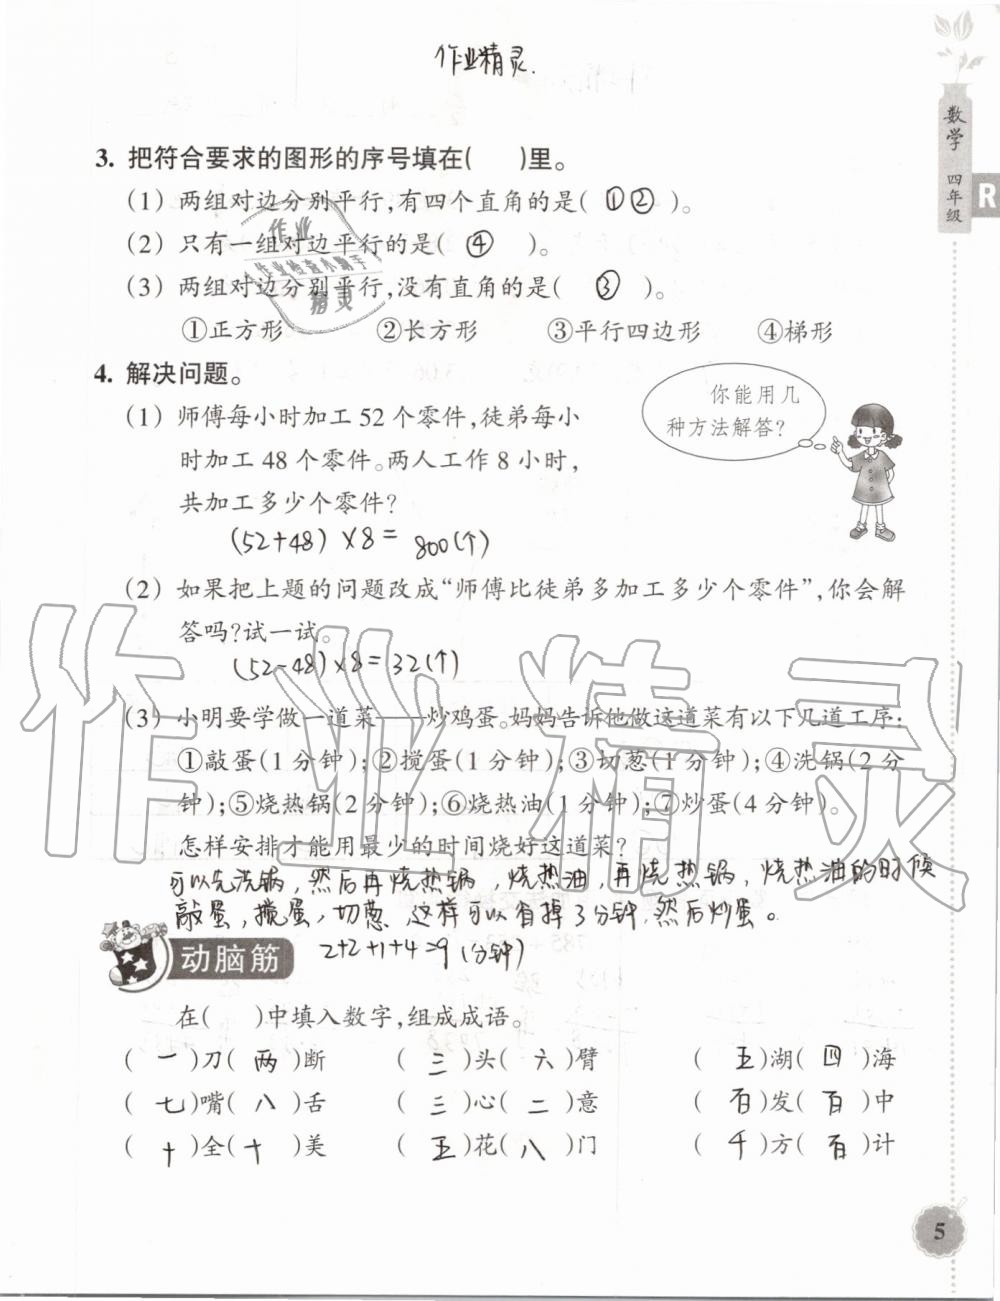 作业精灵.
数学 四年级
R
3. 把符合要求的图形的序号填在(　)里。
(1) 两组对边分别平行,有四个直角的是( ①② )。
(2) 只有一组对边平行的是( ④ )。
(3) 两组对边分别平行,没有直角的是( ③ )。
①正方形 ②长方形 ③平行四边形 ④梯形
作业
作业检查小助手
精灵
4. 解决问题。
(1) 师傅每小时加工 52 个零件,徒弟每小
时加工 48 个零件。两人工作 8 小时,
共加工多少个零件?
你能用几
种方法解答?
(52+48)×8= 800(个)
(2) 如果把上题的问题改成“师傅比徒弟多加工多少个零件”,你会解
答吗?试一试。
(52-48)×8=32(个)
(3) 小明要学做一道菜——炒鸡蛋。妈妈告诉他做这道菜有以下几道工序:
①敲蛋(1 分钟);②搅蛋(1 分钟);③切葱(1 分钟);④洗锅(2 分
钟);⑤烧热锅(2 分钟);⑥烧热油(1 分钟);⑦炒蛋(4 分钟)。
怎样安排才能用最少的时间烧好这道菜?
可以先洗锅,然后再烧热锅,烧热油,再烧热锅,烧热油的时候
敲蛋,搅蛋,切葱,这样可以省掉3分钟,然后炒蛋。
2+2+1+4=9(分钟)
作业精灵
动脑筋
在(　)中填入数字,组成成语。
( 一 )刀( 两 )断 ( 三 )头( 六 )臂 ( 五 )湖( 四 )海
( 七 )嘴( 八 )舌 ( 三 )心( 二 )意 ( 百 )发( 百 )中
( 十 )全( 十 )美 ( 五 )花( 八 )门 ( 千 )方( 百 )计
5